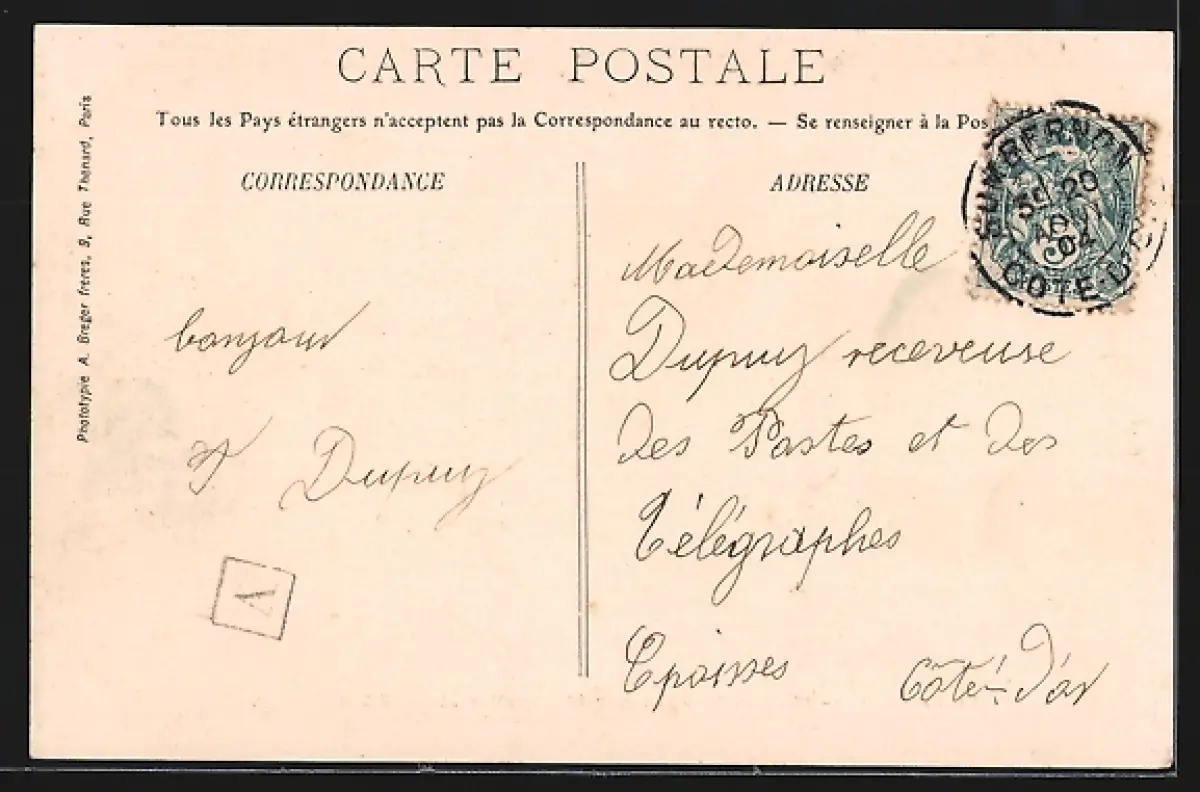 CARTE POSTALE
Tous les Pays étrangers n'acceptent pas la Correspondance au recto. — Se renseigner à la Pos
Phototypie A. Breger freres, 9, Rue Thenard, Paris
CORRESPONDANCE
bonjour
Dupuy
A
ADRESSE
SOMBERNON
20
04
COTE-D'
Mademoiselle
Dupuy receveuse
des Postes et des
Télégraphes
Epoisses Côte-d'or